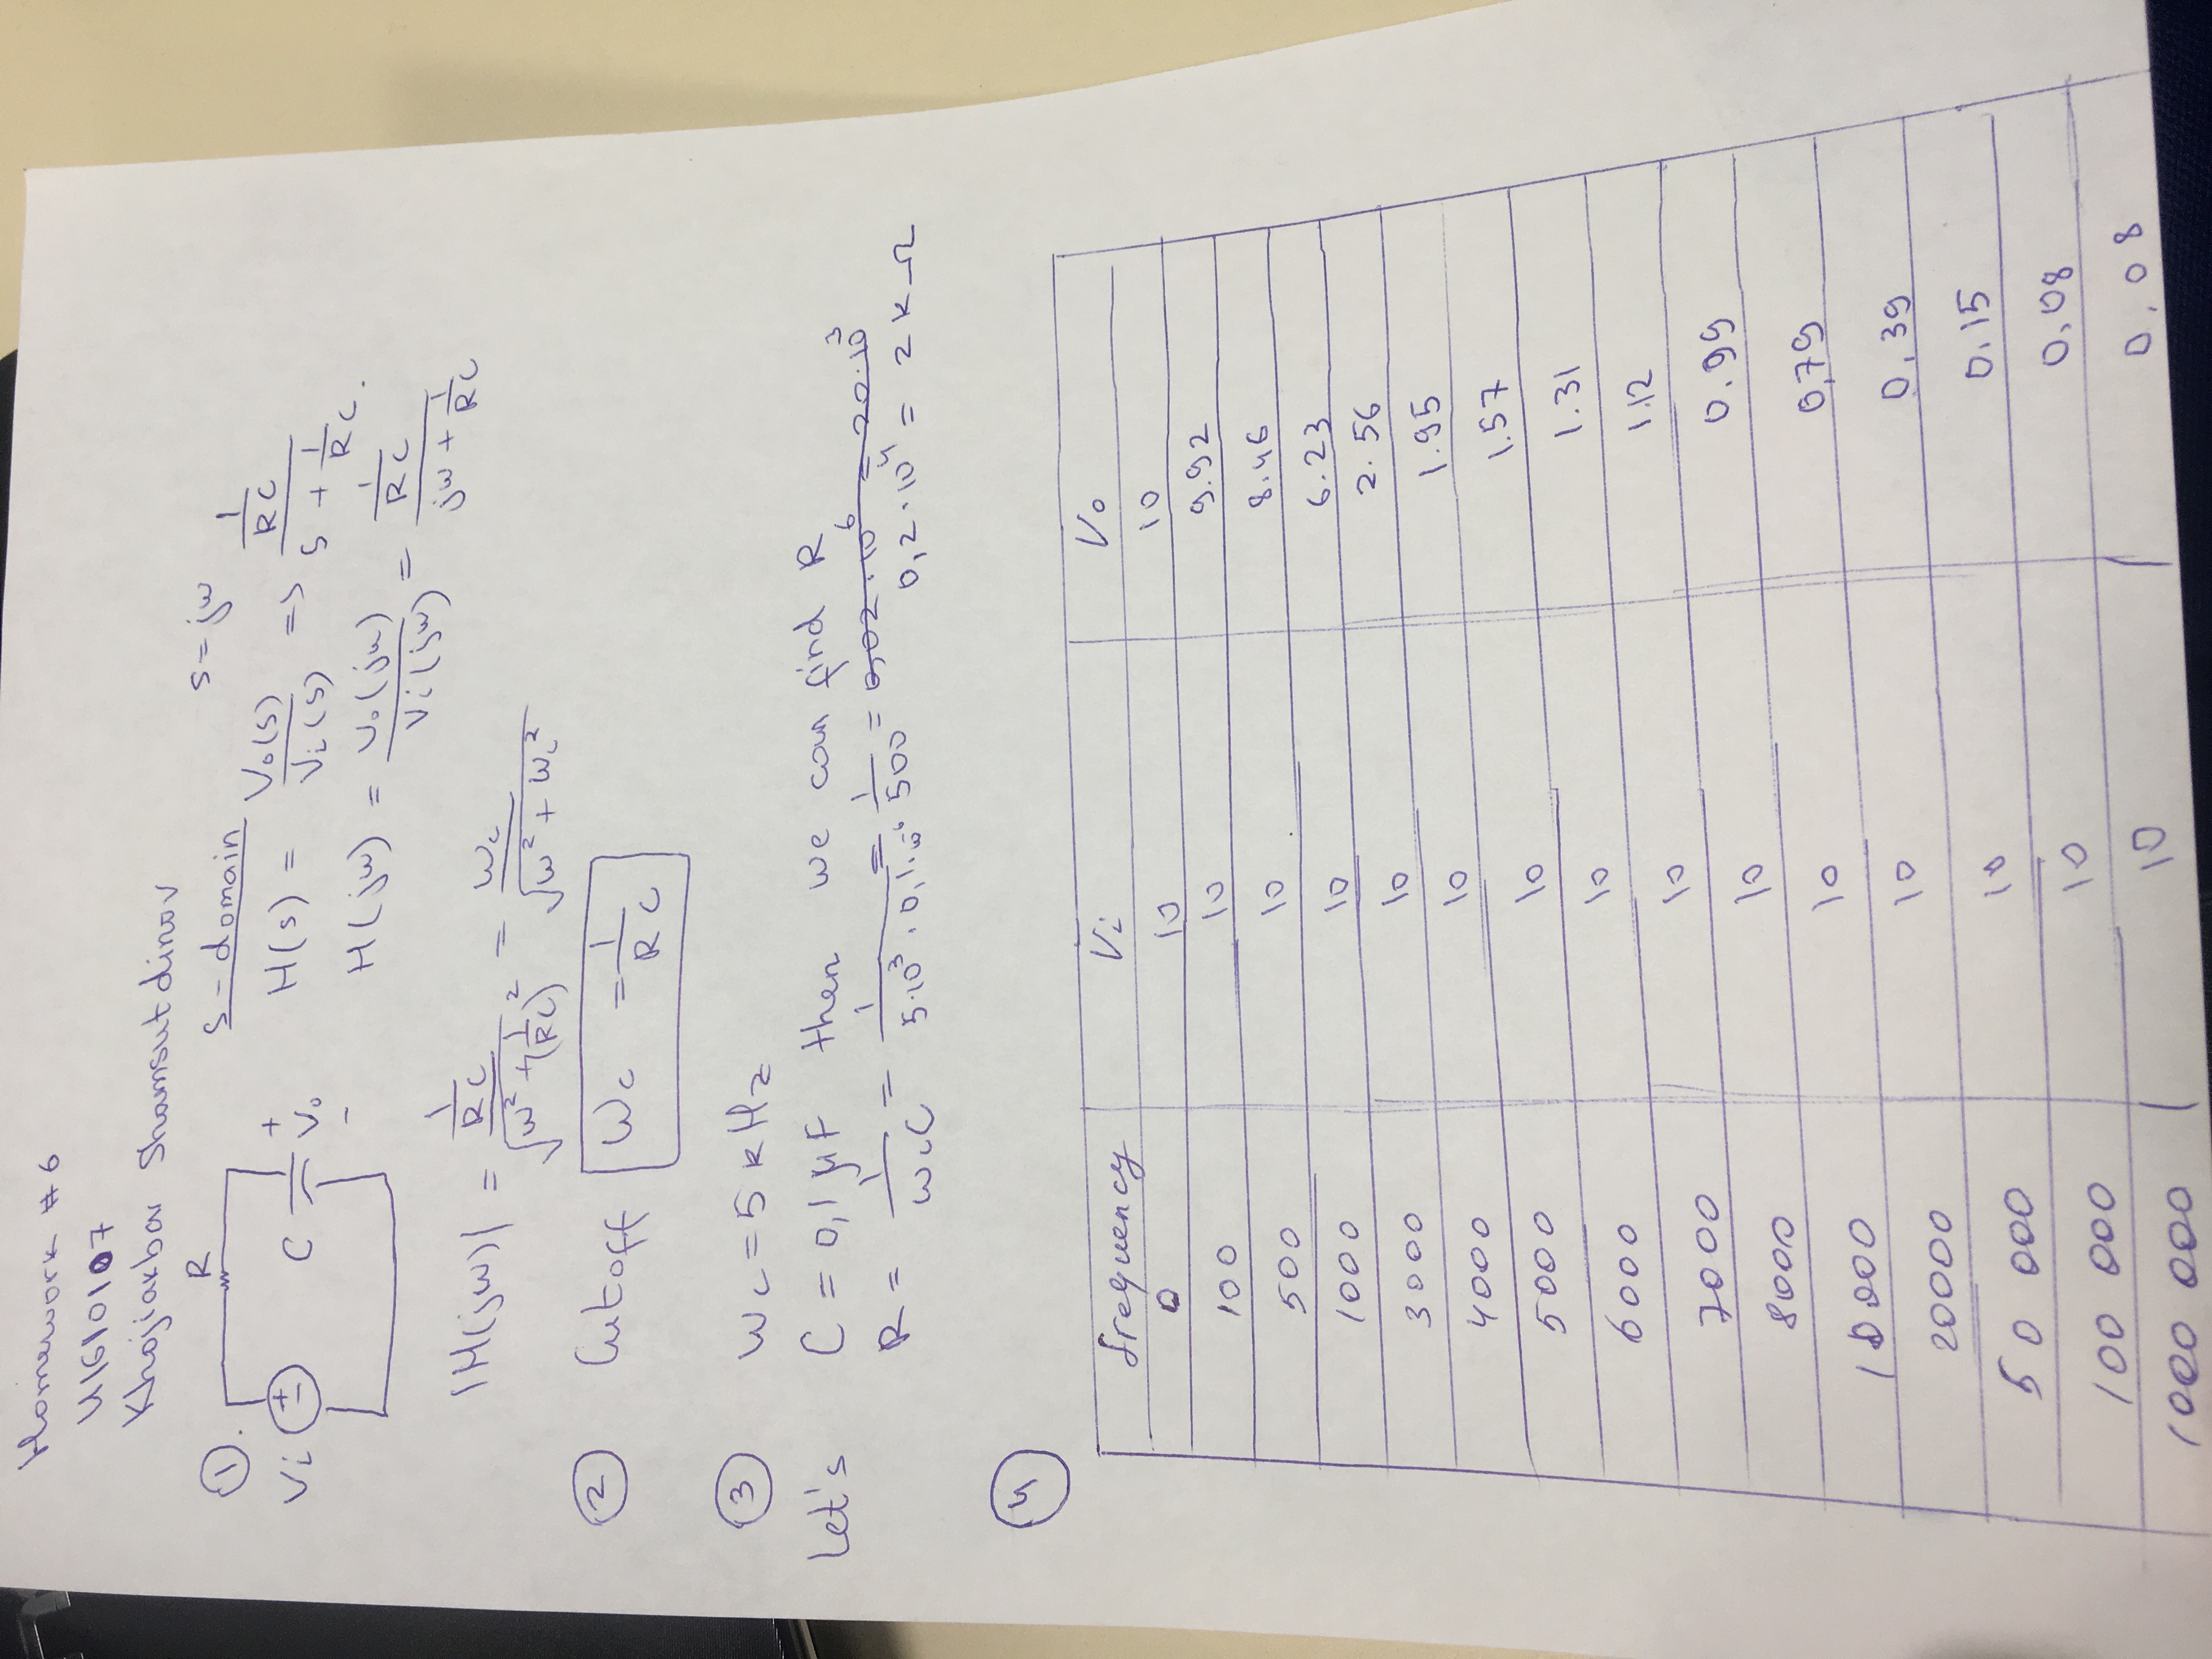 Homework #6
U1610107
Khojiakbar Shamsutdinov
①. R
Vi + - C + Vo -
s-domain s=jω
H(s) = Vo(s)/Vi(s) => (1/RC)/(s + 1/RC).
H(jω) = Vo(jω)/Vi(jω) = (1/RC)/(jω + 1/RC)
|H(jω)| = (1/RC)/√(ω² + (1/RC)²) = ωc/√(ω² + ωc²)
② Cutoff ωc = 1/RC
③ ωc = 5 kHz
Let's C = 0,1 μF then we can find R
R = 1/(ωcC) = 1/(5·10³ · 0,1·10⁻⁶) = 1/500 = 0,02·10⁶ = 20·10³
0,2·10⁴ = 2 kΩ
④
frequency Vi Vo
0 10 10
100 10 9.92
500 10 8.46
1000 10 6.23
3000 10 2.56
4000 10 1.95
5000 10 1.57
6000 10 1.31
7000 10 1.12
8000 10 0.99
10000 10 0,79
20000 10 0.39
50 000 10 0.15
100 000 10 0.08
1000 000 10 0.08